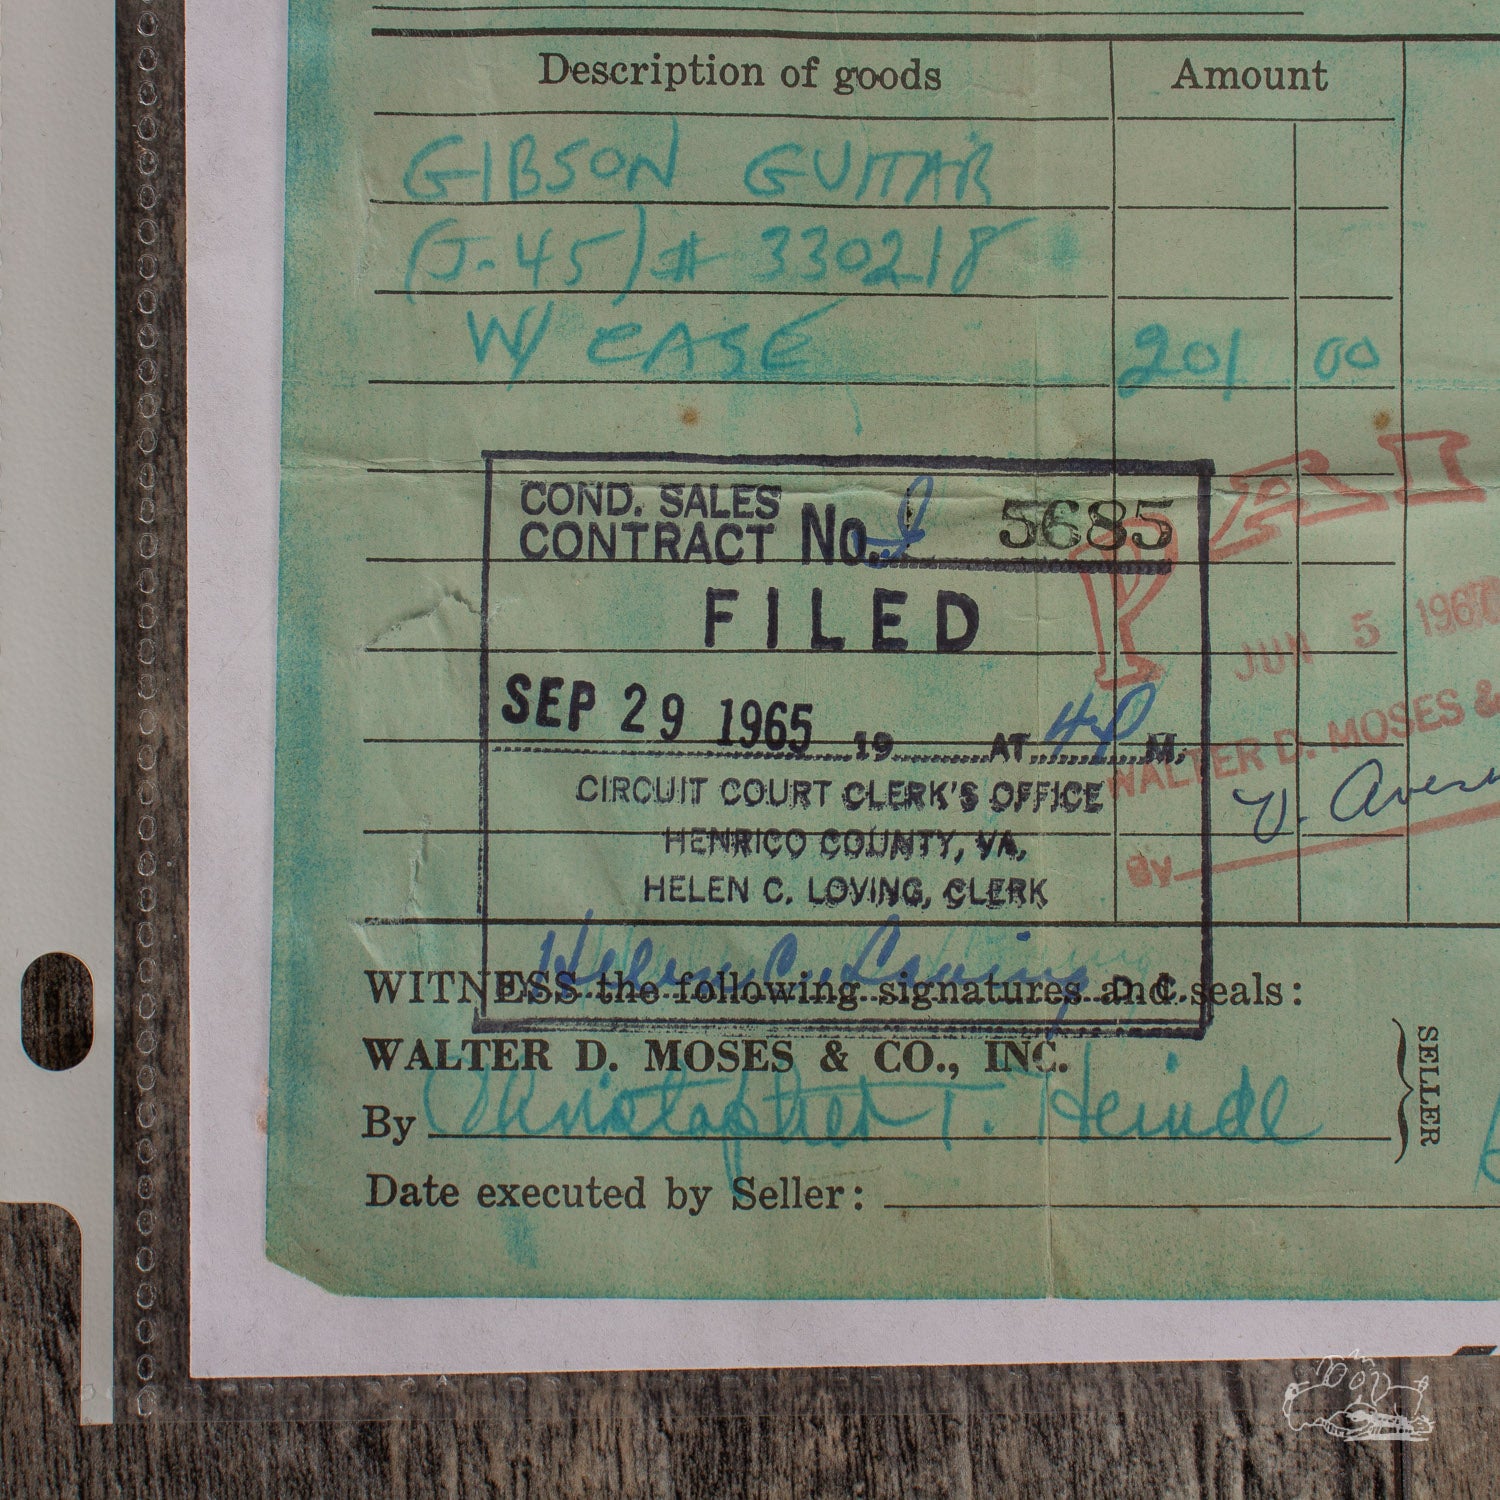 Description of goods Amount
GIBSON GUITAR
(J-45) # 330218
W/ CASE 201 00
COND. SALES
CONTRACT No. 5685
FILED
SEP 29 1965 19 AT 4 P M.
CIRCUIT COURT CLERK'S OFFICE
HENRICO COUNTY, VA.
HELEN C. LOVING, CLERK
Helen C. Loving D.C.
PAI
JUN 5 196
WALTER D. MOSES &
By
WITNESS the following signatures and seals:
WALTER D. MOSES & CO., INC.
By Christopher T. Heindl
SELLER
Date executed by Seller: